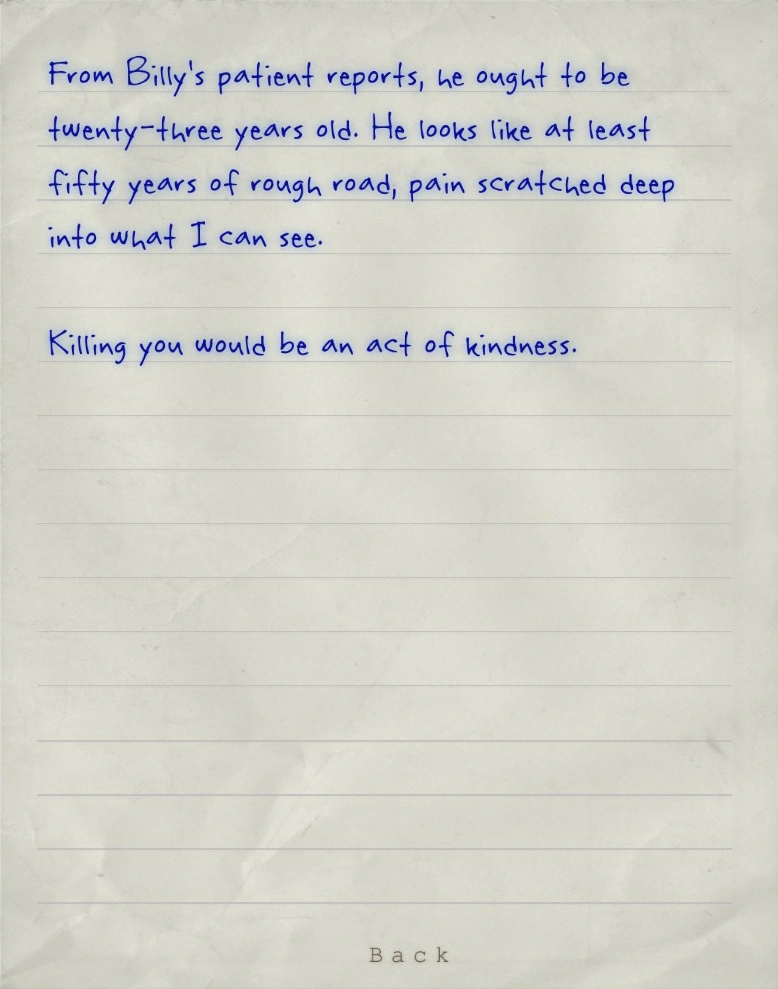 From Billy's patient reports, he ought to be
twenty-three years old. He looks like at least
fifty years of rough road, pain scratched deep
into what I can see.
Killing you would be an act of kindness.
Back